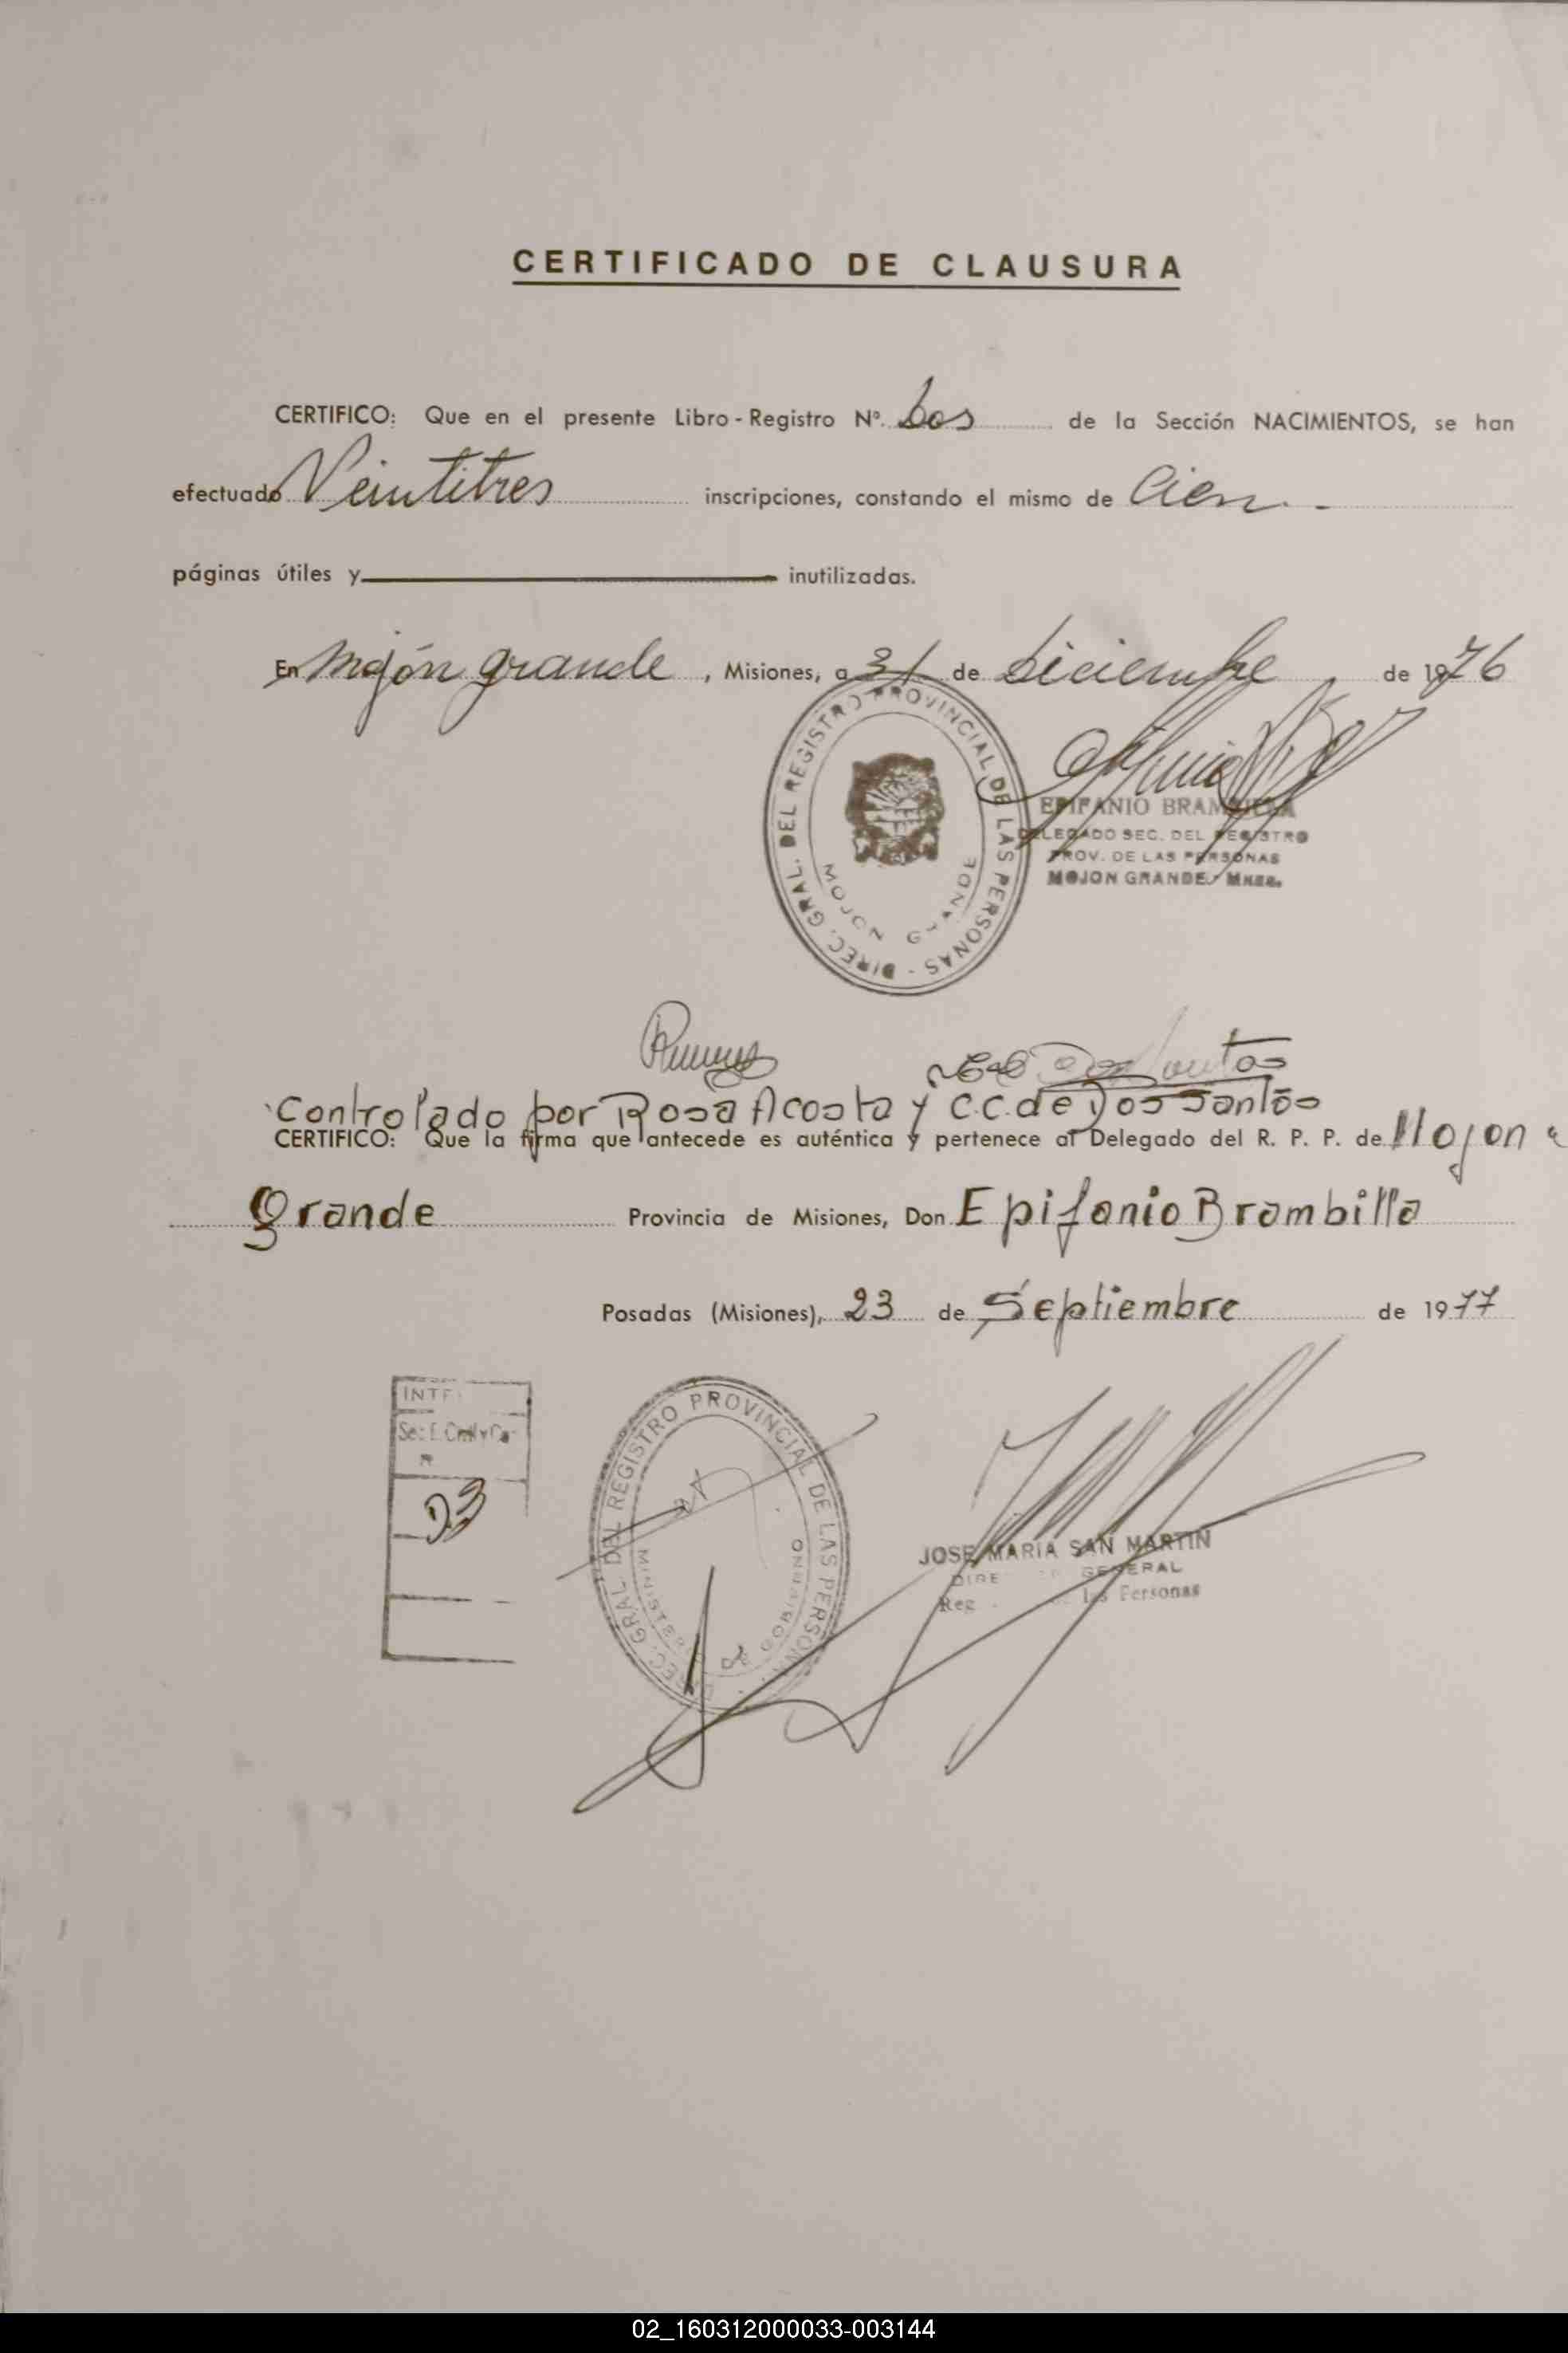 CERTIFICADO DE CLAUSURA
CERTIFICO: Que en el presente Libro - Registro Nº. Dos de la Sección NACIMIENTOS, se han
efectuado Veintitres inscripciones, constando el mismo de Cien. -
páginas útiles y inutilizadas.
En Mojón grande, Misiones, a 31 de Diciembre de 1976
DIREC. GRAL. DEL REGISTRO PROVINCIAL DE LAS PERSONAS -
MOJON GRANDE
EPIFANIO BRAMBILLA
DELEGADO SEC. DEL REGISTRO
PROV. DE LAS PERSONAS
MOJON GRANDE - Mnes.
Controlado por Rosa Acosta y C.C. de Dos Santos
CERTIFICO: Que la firma que antecede es auténtica y pertenece al Delegado del R. P. P. de Mojon
Grande Provincia de Misiones, Don Epifanio Brambilla
Posadas (Misiones), 23 de Septiembre de 1977
INTE
23
DIREC. GRAL. DEL REGISTRO PROVINCIAL DE LAS PERSONAS
MINISTERIO DE GOBIERNO
JOSE MARIA SAN MARTIN
GENERAL
Reg las Personas
02_160312000033-003144